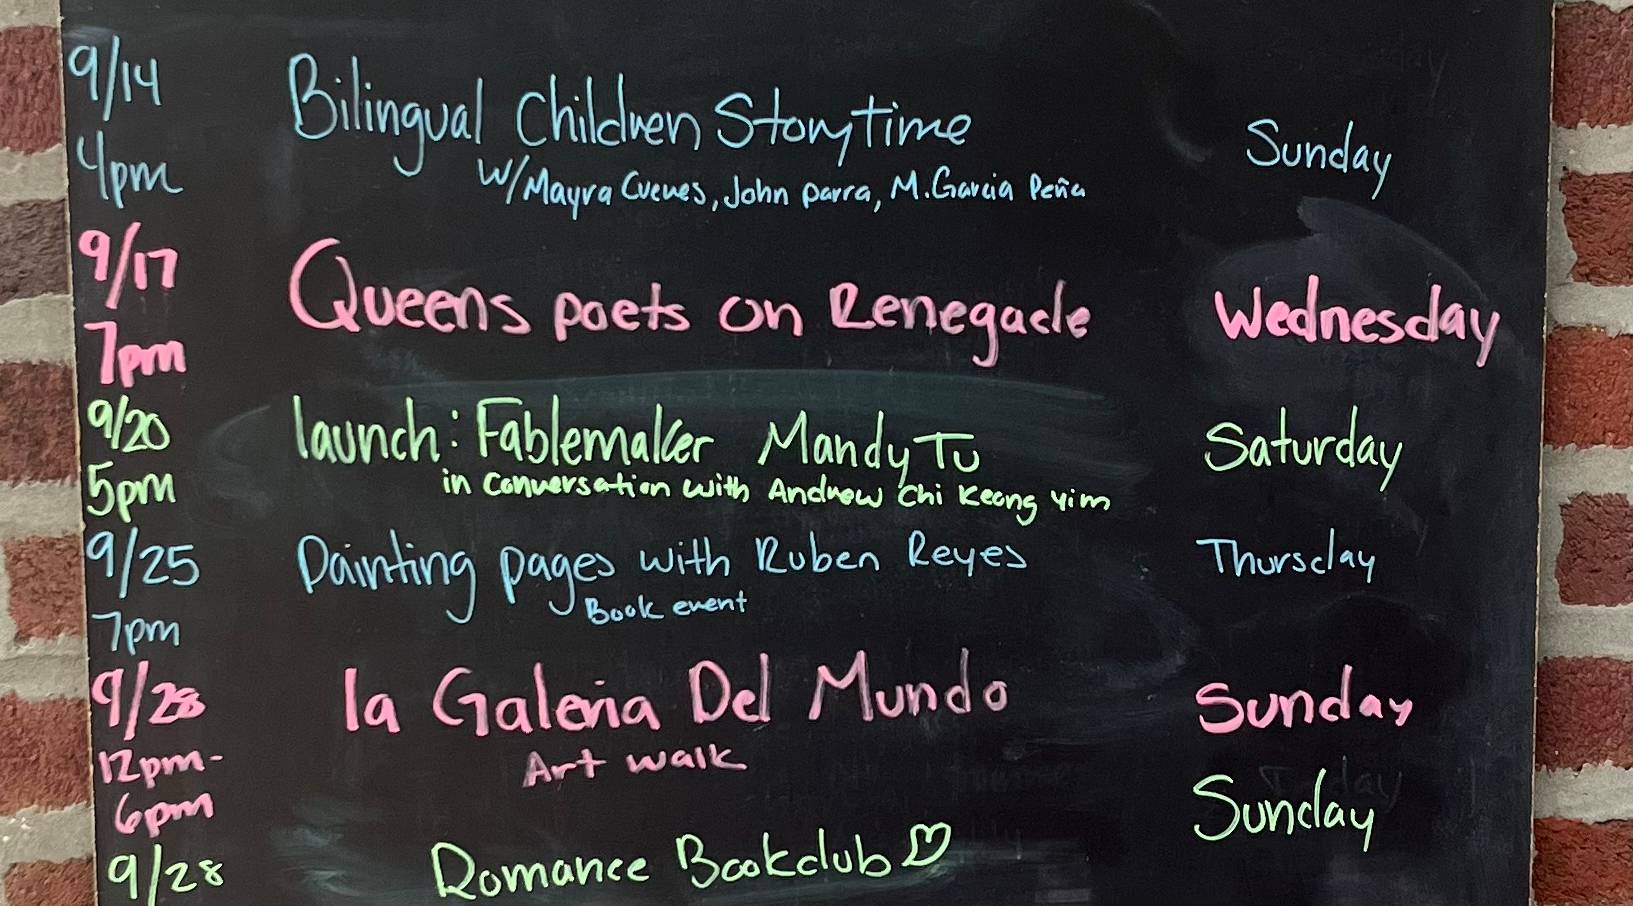 9/14 Bilingual Children Storytime Sunday
4pm w/Mayra Cuevas, John parra, M. Garcia Peña
9/17 Queens poets on Renegade Wednesday
7pm
9/20 launch: Fablemaker Mandy Tu Saturday
5pm in conversation with Andrew Chi Keong Yim
9/25 Painting pages with Ruben Reyes Thursday
7pm Book event
9/28 la Galeria Del Mundo Sunday
12pm- Art walk
6pm
9/28 Romance Bookclub Sunday